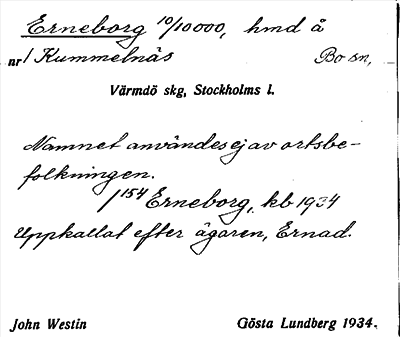 Erneborg 10/10000, hmd å
nr 1 Kummelnäs Bo sn,
Värmdö skg, Stockholms l.
Namnet användes ej av ortsbe-
folkningen.
1/154 Erneborg, kb 1934
Uppkallat efter ägaren, Ernad.
John Westin Gösta Lundberg 1934.